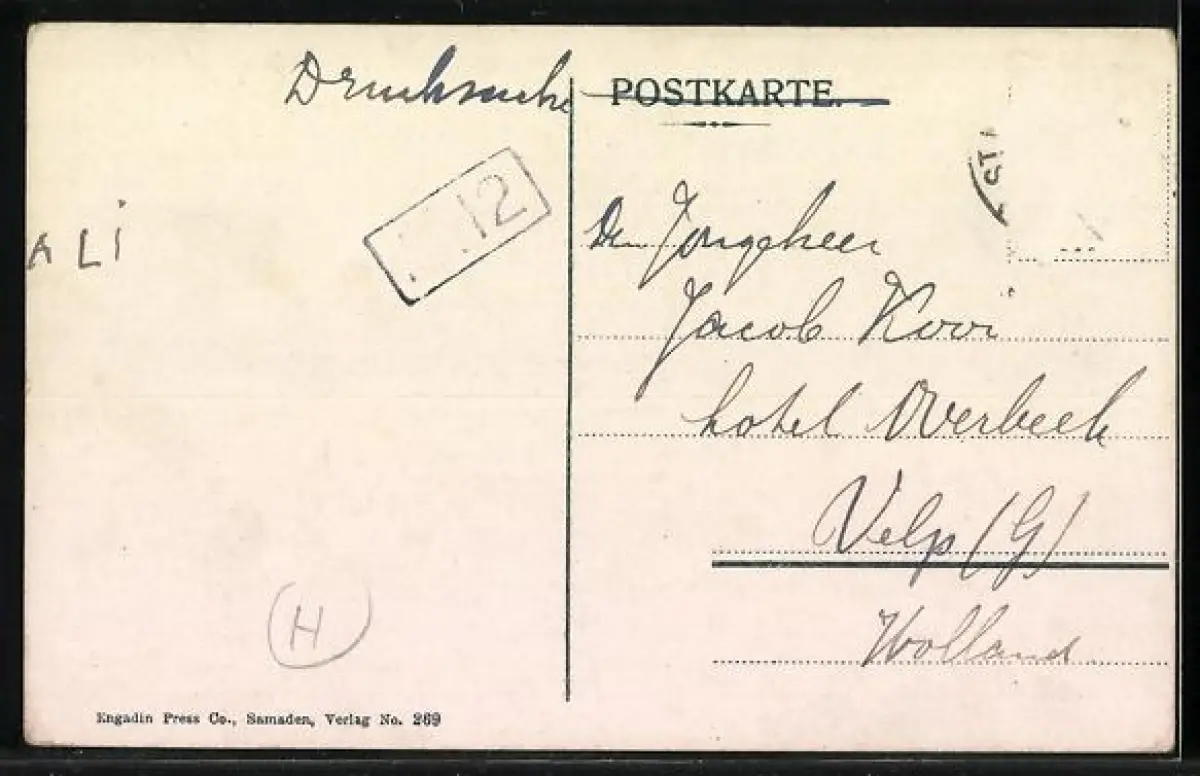 Drucksache
POSTKARTE.
12
ALi
Den Jongeheer
Jacob Kooi
hotel Overbeek
Velp (G)
Holland
H
Engadin Press Co., Samaden, Verlag No. 269